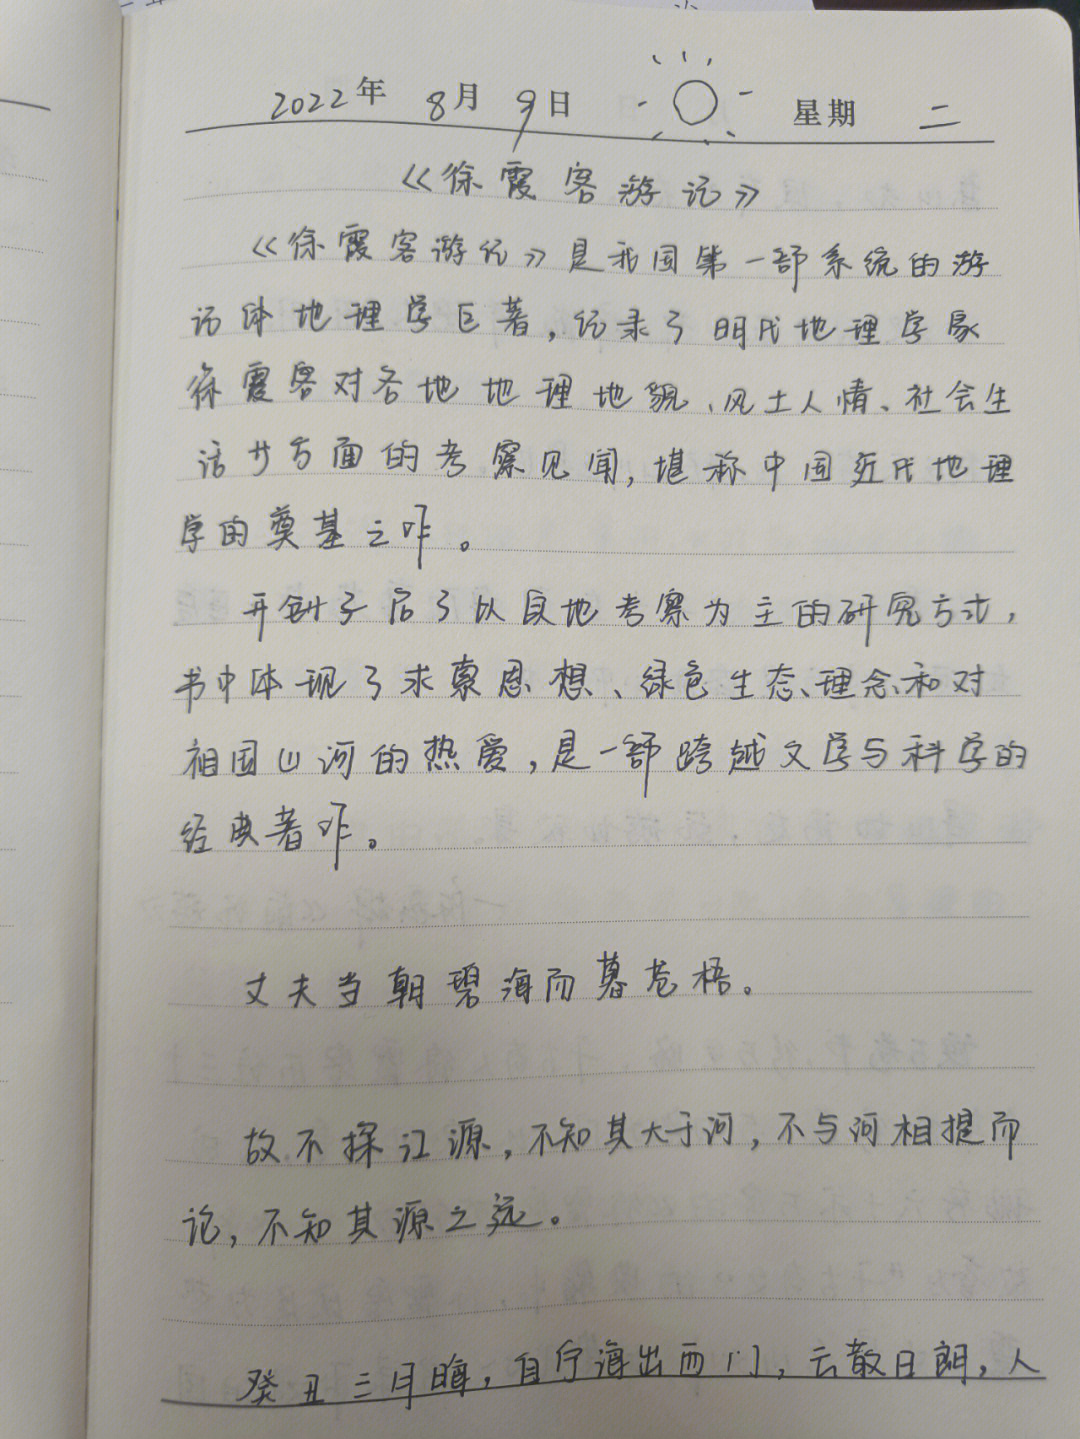 2022年 8月 9日 星期 二
《徐霞客游记》
《徐霞客游记》是我国第一部系统的游
记体地理学巨著,记录了明代地理学家
徐霞客对各地地理地貌、风土人情、社会生
活等方面的考察见闻,堪称中国近代地理
学的奠基之作。
开创了后了以实地考察为主的研究方式,
书中体现了求索思想、绿色生态、理念、和对
祖国山河的热爱,是一部跨越文学与科学的
经典著作。
丈夫当朝碧海而暮苍梧。
故不探江源,不知其大于河,不与河相提而
论,不知其源之远。
癸丑三月晦,自宁海出西门,云散日朗,人